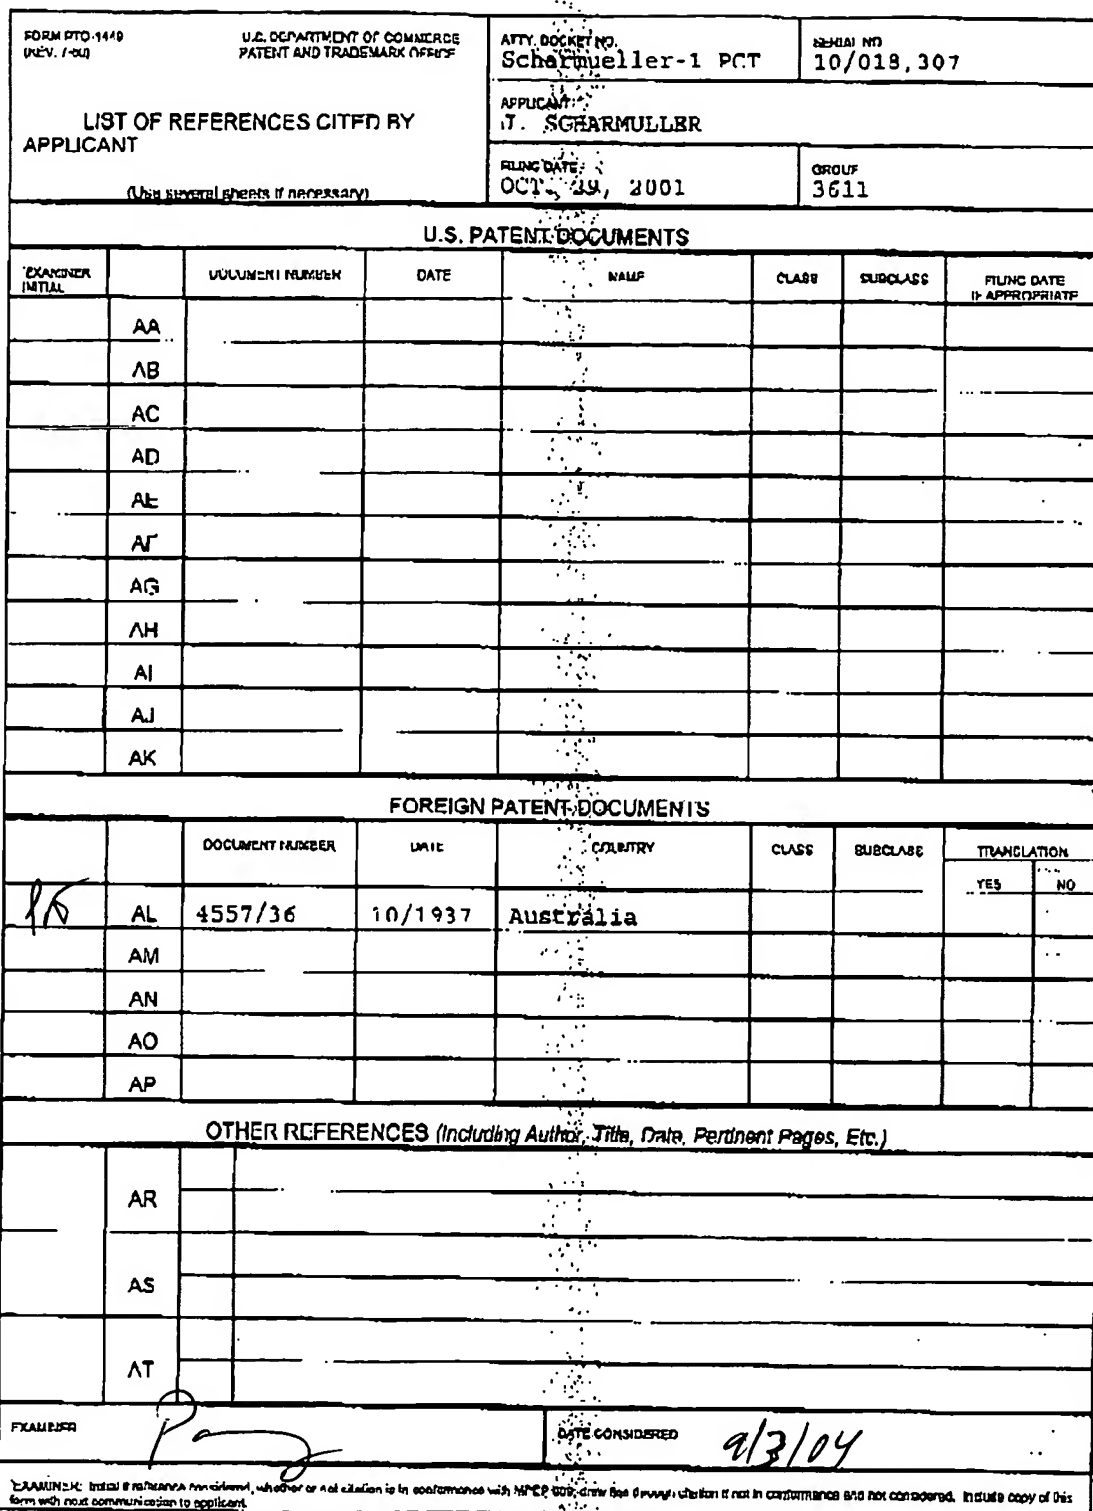 FORM PTO-1449
(REV. 7-80)
U.S. DEPARTMENT OF COMMERCE
PATENT AND TRADEMARK OFFICE
ATTY. DOCKET NO.
Scharmueller-1 PCT
SERIAL NO
10/018,307
LIST OF REFERENCES CITED BY
APPLICANT
(Use several sheets if necessary)
APPLICANT
J. SCHARMULLER
FILING DATE
OCT. 29, 2001
GROUP
3611
U.S. PATENT DOCUMENTS
*EXAMINER
INITIAL
DOCUMENT NUMBER
DATE
NAME
CLASS
SUBCLASS
FILING DATE
IF APPROPRIATE
AA
AB
AC
AD
AE
AF
AG
AH
AI
AJ
AK
FOREIGN PATENT DOCUMENTS
DOCUMENT NUMBER
DATE
COUNTRY
CLASS
SUBCLASS
TRANSLATION
YES
NO
AL
4557/36
10/1937
Australia
AM
AN
AO
AP
OTHER REFERENCES (Including Author, Title, Date, Pertinent Pages, Etc.)
AR
AS
AT
EXAMINER
DATE CONSIDERED
9/3/04
*EXAMINER: Initial if reference considered, whether or not citation is in conformance with MPEP 609; draw line through citation if not in conformance and not considered. Include copy of this
form with next communication to applicant.